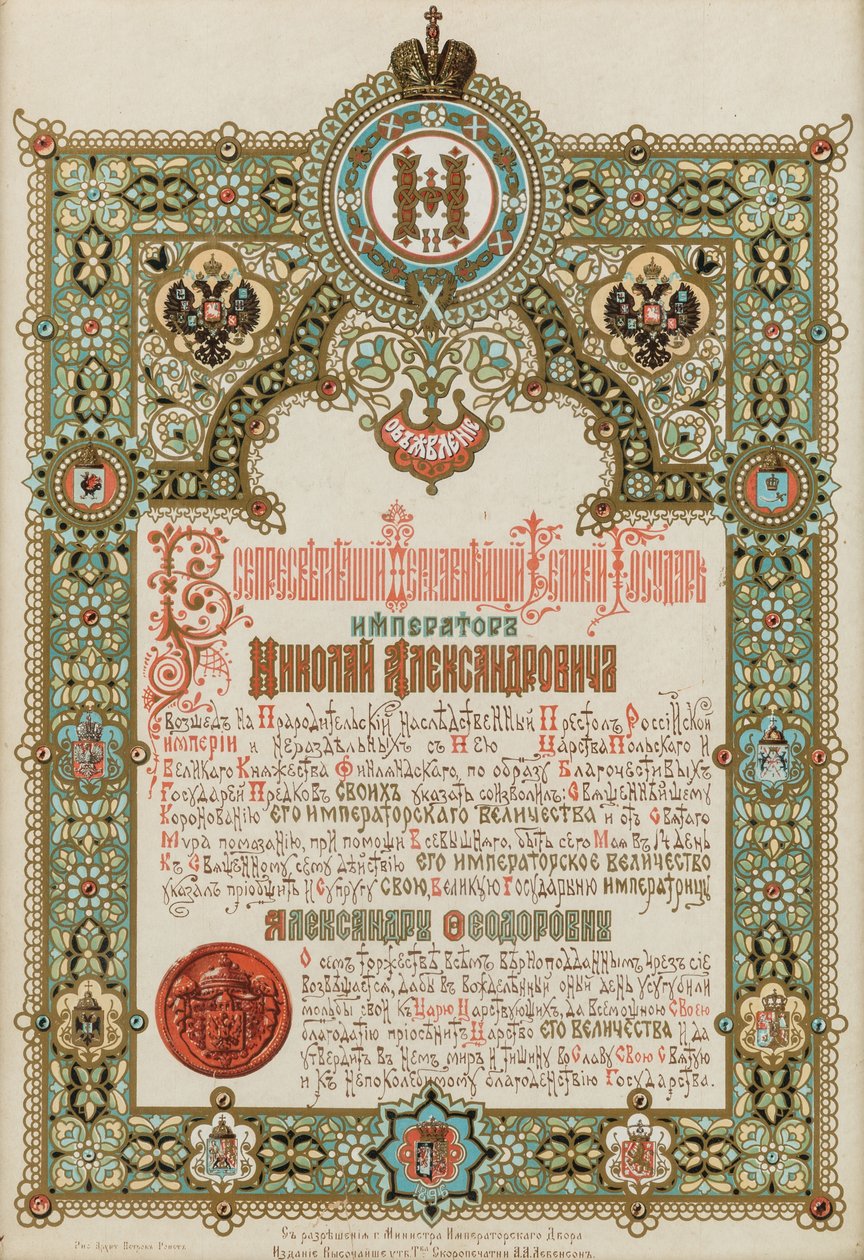 Н
II
ОБЪЯВЛЕНІЕ
ВСЕПРЕСВѢТЛѢЙШІЙ ДЕРЖАВНѢЙШІЙ ВЕЛИКІЙ ГОСУДАРЬ
ИМПЕРАТОРЪ
НИКОЛАЙ АЛЕКСАНДРОВИЧЪ
возшедъ на Прародительскій наслѣдственный Престолъ Россійской
Имперіи и нераздѣльныхъ съ Нею Царства Польскаго и
Великаго Княжества Финляндскаго, по образу Благочестивыхъ
Государей Предковъ СВОИХЪ указать соизволилъ: Священнѣйшему
Коронованію ЕГО ИМПЕРАТОРСКАГО ВЕЛИЧЕСТВА и отъ Святаго
Мура помазанію, при помощи Всевышняго, быть сего Мая въ 14 день
Къ Священному сему дѣйствію ЕГО ИМПЕРАТОРСКОЕ ВЕЛИЧЕСТВО
указалъ пріобщить и Супругу СВОЮ, Великую Государыню ИМПЕРАТРИЦУ
АЛЕКСАНДРУ ѲЕОДОРОВНУ
О семъ торжествѣ всѣмъ вѣрноподданнымъ чрезъ сіе
возвѣщается, дабы въ вожделѣнный оный день усугубили
мольбы свои къ Царю Царствующихъ, да всемощною Своею
благодатію пріосѣнитъ Царство ЕГО ВЕЛИЧЕСТВА и да
утвердитъ въ немъ миръ и тишину во Славу Свою Святую
и къ непоколебимому благоденствію Государства.
1896
Рис. Архит. Петровъ Ропетъ
Съ разрѣшенія г. Министра Императорскаго Двора
Изданіе Высочайше утв. Т-ва Скоропечатни А.А.Левенсонъ.